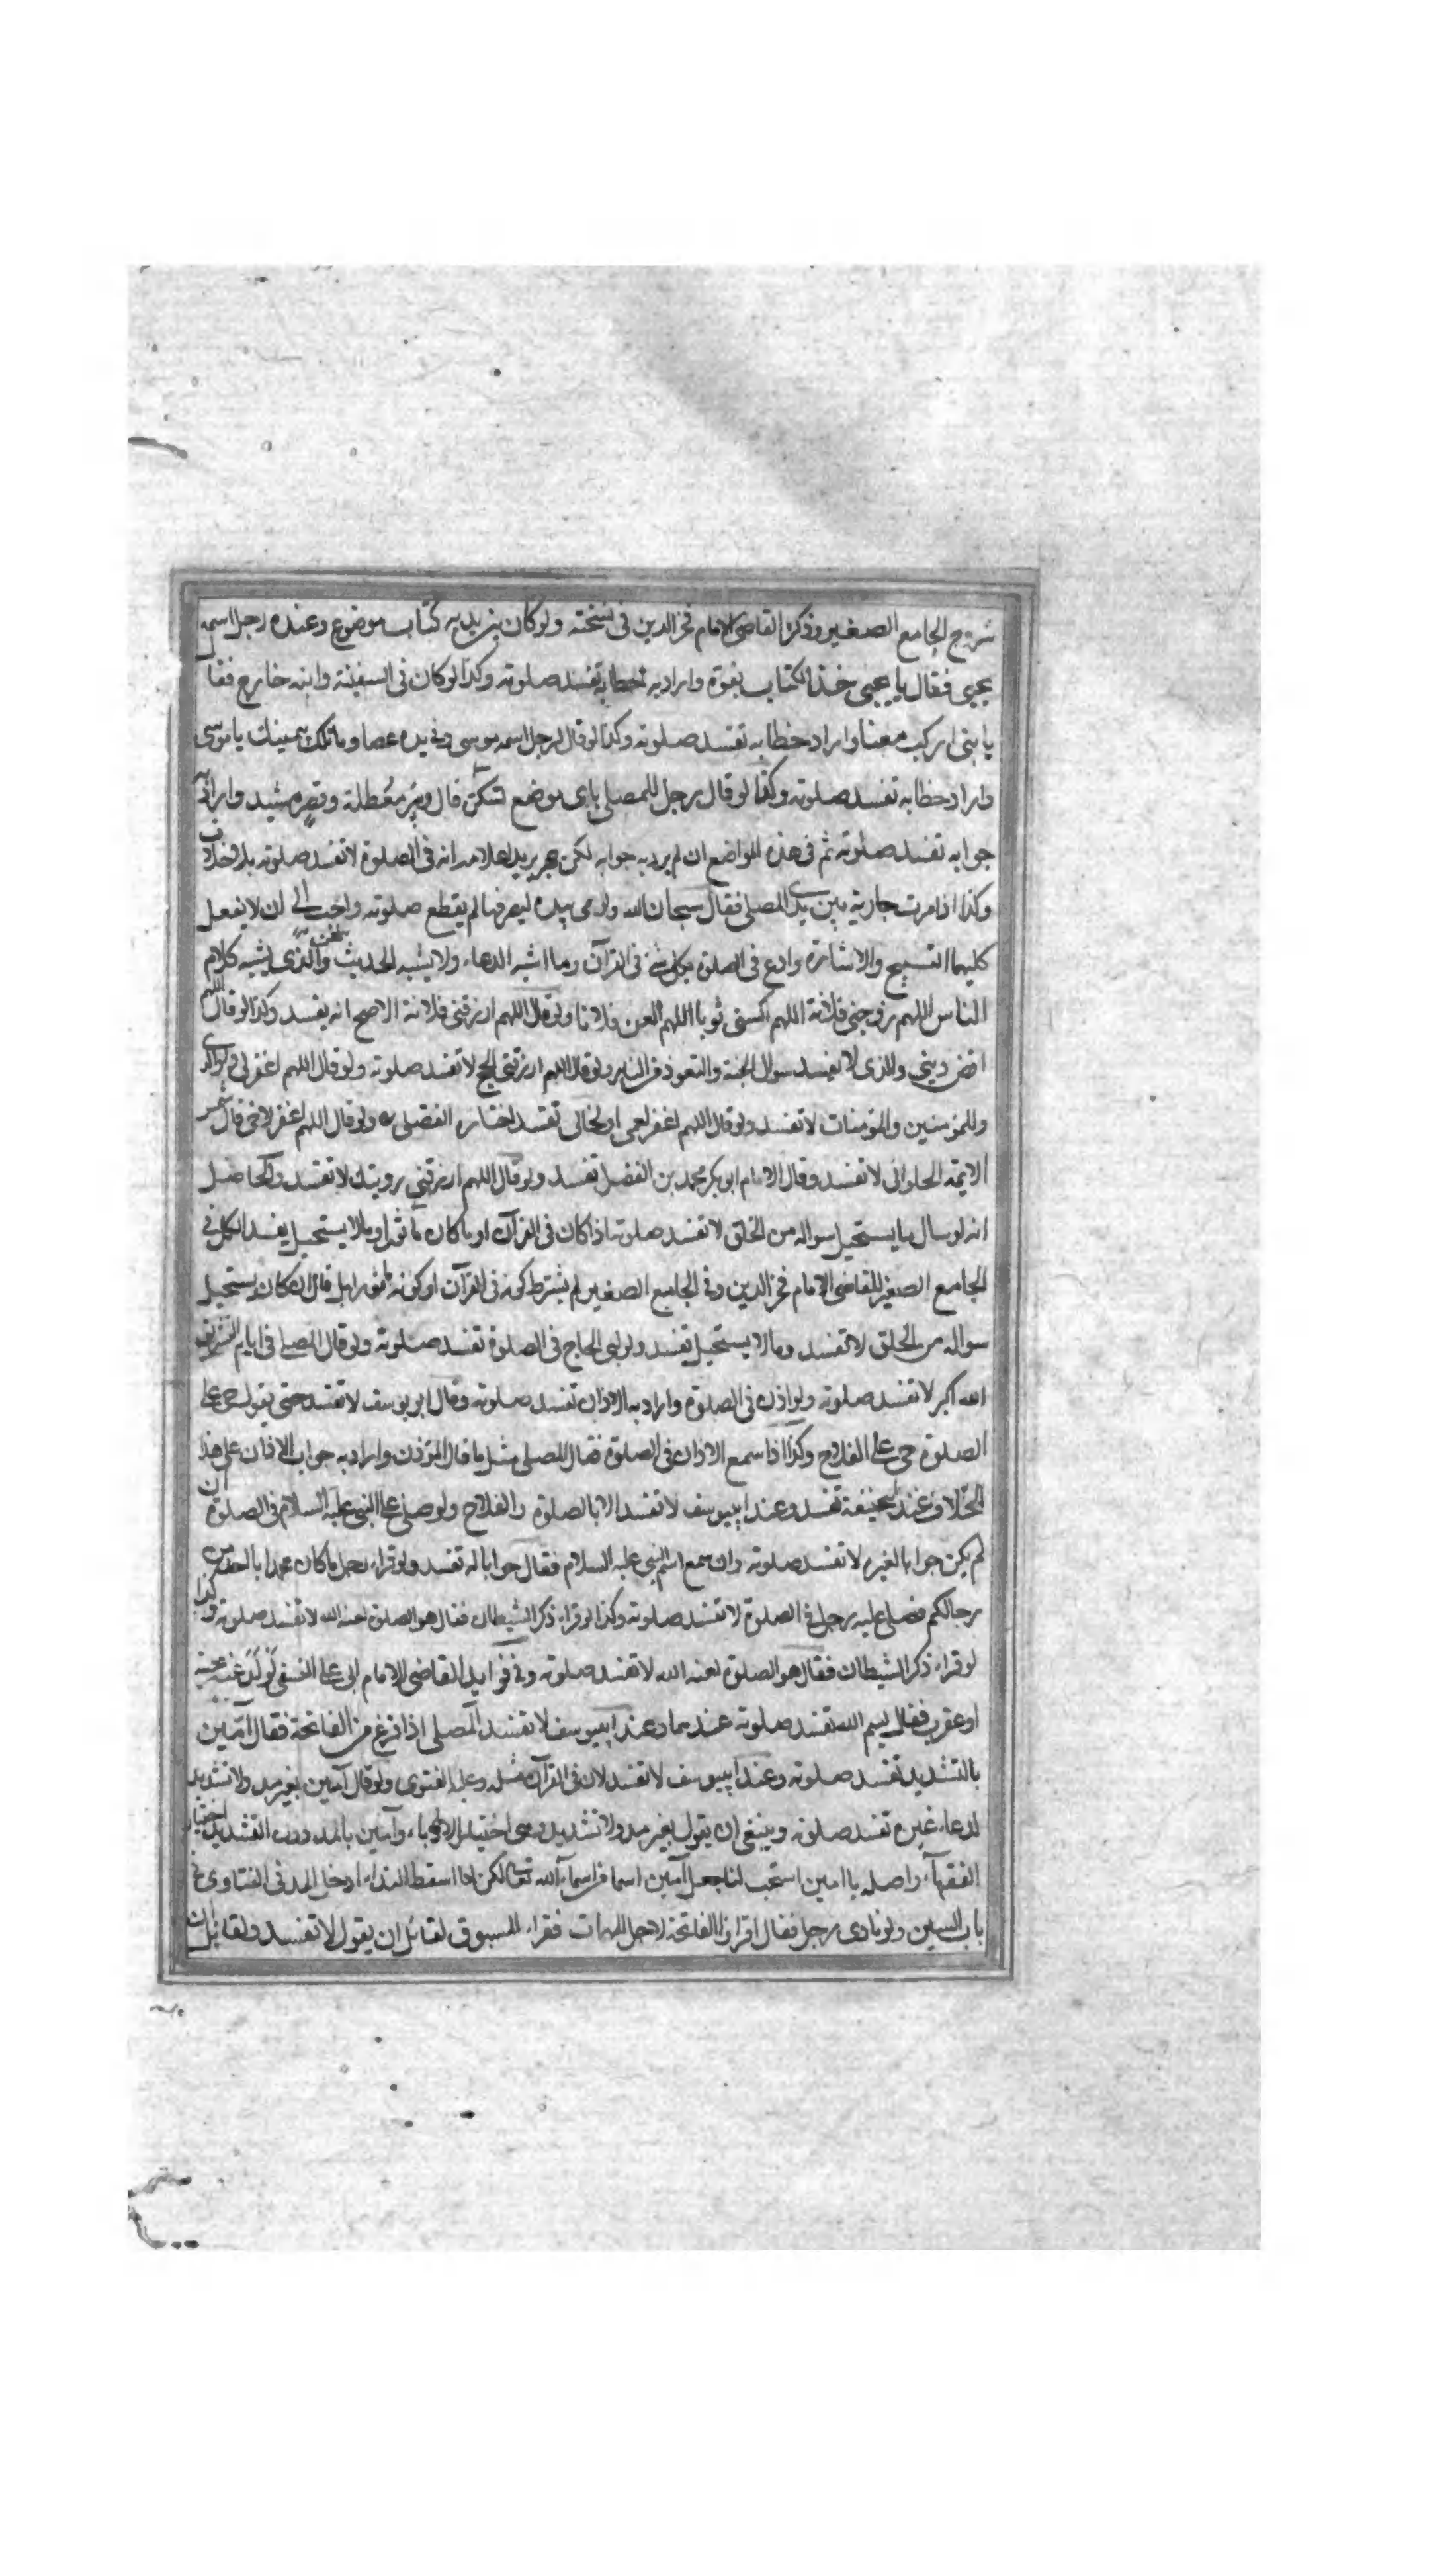 شروح الجامع الصغير وذكر القاضى الامام فخر الدين فى نسخته ولو كان بين يديه كتاب موضوع وعنده رجل اسمه
يحيى فقال يا يحيى خذ الكتاب بقوة واراد به خطابه تفسد صلوته وكذا لو كان فى السفينة وابنه خارج فقا
يا بنى اركب معنا واراد خطابه تفسد صلوته وكذا لو قال لرجل اسمه موسى وفى يده عصا وما تلك بيمينك يا موسى
واراد خطابه تفسد صلوته وكذا لو قال رجل للمصلى باى موضع تسكن قال وبئر معطلة وقصر مشيد واراد به
جوابه تفسد صلوته ثم فى هذه المواضع ان لم يرد به جوابه لكن يريد اعلامه انه فى الصلوة لا تفسد صلوته بلا خلاف
وكذا اذا مرت جارية بين يدى المصلى فقال سبحان الله واومى بيده ليصرفها لم يقطع صلوته واحب الى ان لا يفعل
كليهما التسبيح والاشارة وادع فى الصلوة بكل شئ فى القرآن وما اشبه الدعاء ولا يشبه الحديث والذى يشبه كلام
الناس اللهم زوجنى فلانة اللهم اكسنى ثوبا اللهم العن فلانا ولو قال اللهم ارزقنى فلانة الاصح انه يفسد وكذا لو قال اللهم
اقض دينى والذى لا يفسد سوال الجنة والتعوذ من النار ولو قال اللهم ارزقنى الحج لا تفسد صلوته ولو قال اللهم اغفر لى ولوالدى
وللمؤمنين والمؤمنات لا تفسد ولو قال اللهم اغفر لعمى او لخالى تفسد اختاره الفضلى ولو قال اللهم اغفر لاخى قال شمس
الايمة الحلوانى لا تفسد وقال الامام ابو بكر محمد بن الفضل تفسد ولو قال اللهم ارزقنى رويتك لا تفسد والحاصل
انه لو سال ما يستحيل سواله من الخلق لا تفسد صلوته اذا كان فى القرآن او ما كان ماثورا وما لا يستحيل يفسد الكل فى
الجامع الصغير للقاضى الامام فخر الدين وفى الجامع الصغير لم يشترط كونه فى القرآن او كونه ماثورا بل قال ان كان يستحيل
سواله من الخلق لا تفسد وما لا يستحيل تفسد ولو لبى الحاج فى الصلوة تفسد صلوته ولو قال المصلى فى ايام التشريق
الله اكبر لا تفسد صلوته ولو اذن فى الصلوة واراد به الاذان تفسد صلوته وقال ابو يوسف لا تفسد حتى يقول حى على
الصلوة حى على الفلاح وكذا اذا سمع الاذان فى الصلوة فقال المصلى مثل ما قال المؤذن واراد به جواب الاذان على هذا
الخلاف عند ابى حنيفة تفسد وعند ابى يوسف لا تفسد الا بالصلوة والفلاح ولو صلى على النبى عليه السلام فى الصلوة ان
لم يكن جوابا لغيره لا تفسد صلوته وان سمع اسم النبى عليه السلام فقال جوابا له تفسد ولو قراء رجل ما كان محمد ابا احد من
رجالكم فصلى عليه رجل فى الصلوة لا تفسد صلوته وكذا لو قراء ذكر الشيطان فقال هو الصلوة لعنه الله لا تفسد صلوته وكذا
لو قراء ذكر الشيطان فقال هو الصلوة لعنه الله لا تفسد صلوته وفى فوايد القاضى الامام ابى على النسفى لو لدغته حية
او عقرب فقال بسم الله تفسد صلوته عندهما وعند ابى يوسف لا تفسد المصلى اذا فرغ من الفاتحة فقال آمين
بالتشديد تفسد صلوته وعند ابى يوسف لا تفسد لان فى القرآن مثله وعليه الفتوى ولو قال آمين بغير مد ولا تشديد
لدعاء غيره تفسد صلوته وينبغى ان يقول بغير مد ولا تشديد وهى اختيار الادباء وآمين بالمد دون التشديد اختيار
الفقهاء واصله يا امين استجب لنا جعل آمين اسما من اسماء الله تعالى لكن لما اسقط النداء ادخل المد فى الفتاوى فى
باب السين ولو نادى رجل فقال اقراوا الفاتحة لاجل المهمات فقراء المسبوق لقائل ان يقول لا تفسد ولقائل ان